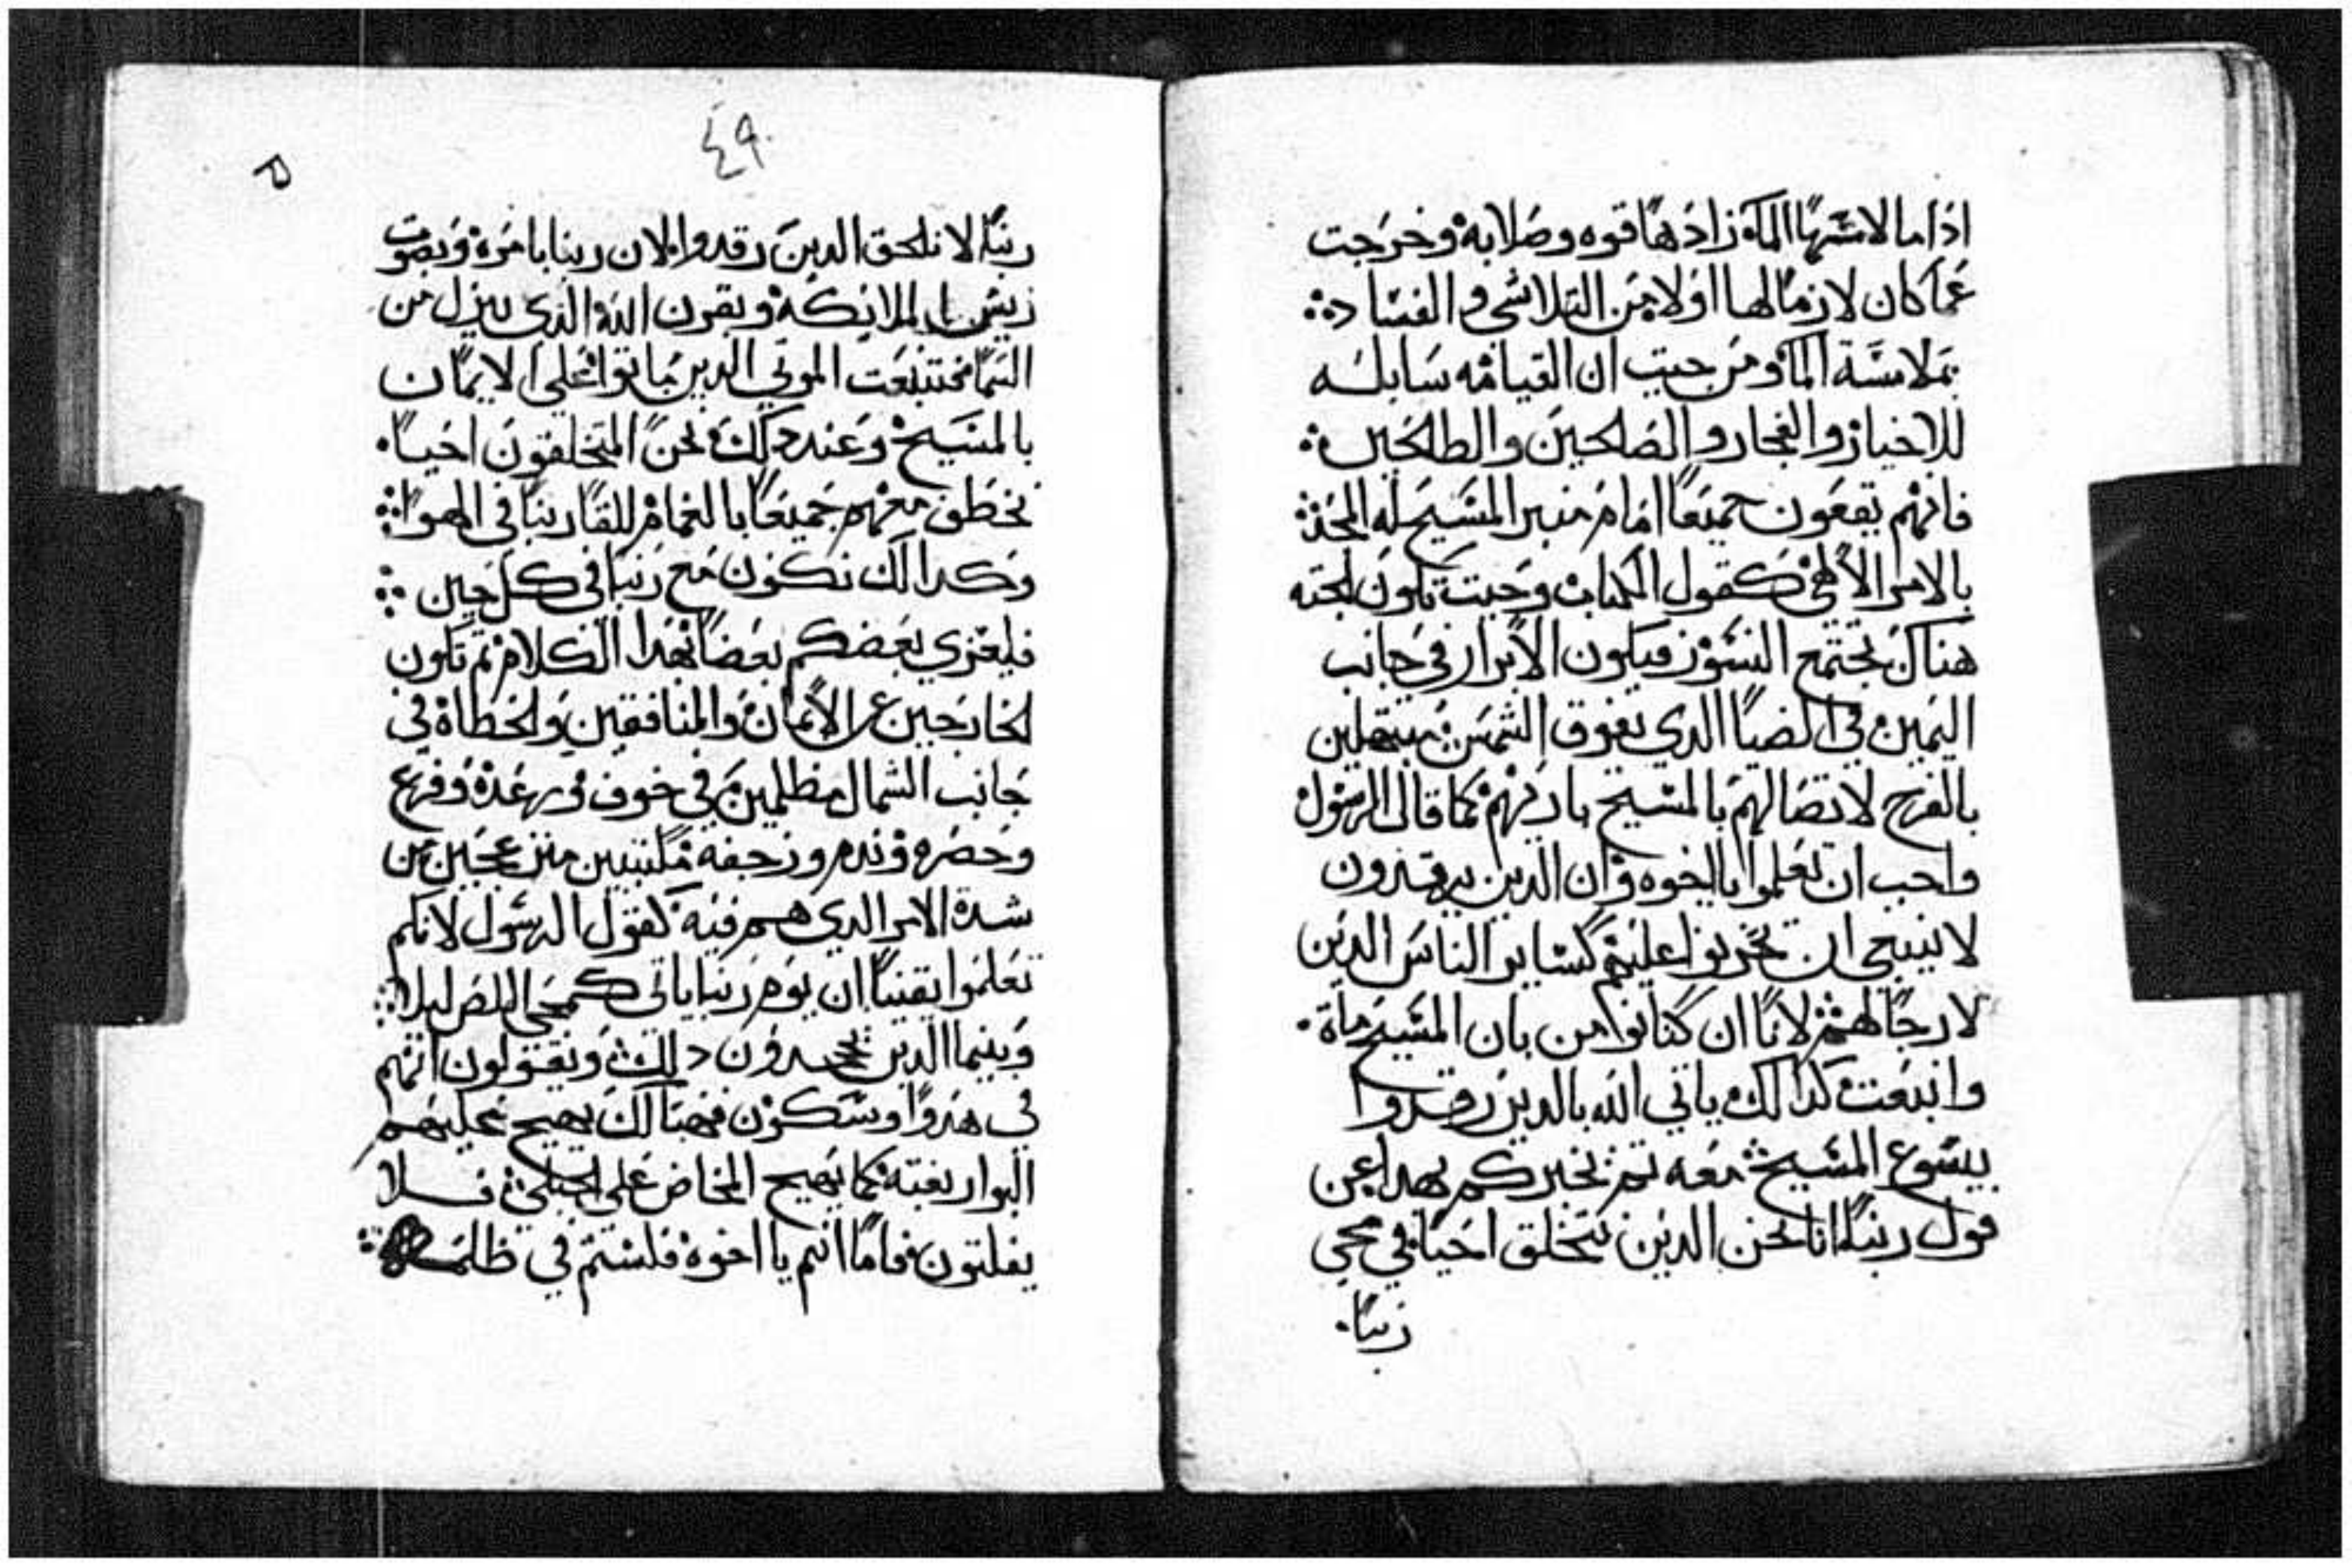 اذا ما لامسها الماء زادها قوه وصلابه وخرجت
عما كان لازما لها اولا من التلاشي والفساد
بملامسة الماء ومن حيت ان القيامه سابله
للاخيار والفجار والصالحين والطالحين
فانهم يقفون جميعا امام منبر المسيح له المجد
بالامر الالهي كقول الكتاب وحيت تكون الجته
هناك تجتمع النسور فيكون الابرار في جانب
اليمين في الضيا الدي يفوق الشمس مبتهلين
بالفرح لاتصالهم بالمسيح باريهم كما قال الرسول
واحب ان تعلموا يا اخوه وان الدين يرقدون
لا ينبغي ان تحزنوا عليهم كساير الناس الدين
لا رجا لهم لانا ان كنا نوامن بان المسيح ماة
وانبعت كدالك ياتي الله بالدين رقدوا
بيسوع المسيح معه تم نخبركم بهدا عن
قول ربنا انا نحن الدين نتخلق احيا في مجي
ربنا
٤٩
ربنا لا نلحق الدين رقدوا لان ربنا بامره وبصوت
ريس الملايكة وبقرن الله الدي ينزل من
السما فتنبعت الموتي الدين ماتوا علي الايمان
بالمسيح وعند دلك نحن المتخلفون احيا
نخطف معهم جميعا بالغمام للقا ربنا في الهوا
وكدالك نكون مع ربنا في كل حين
فليعزي بعضكم بعضا بهدا الكلام تم تكون
الخارجين عن الايمان والمنافقين والخطاة في
جانب الشمال مظلمين في خوف ورعدة وفزع
وحصره وندم ورجفه مكتيبين منزعجين من
شدة الامر الدي هم فيه كقول الرسول لانكم
تعلموا يقينا ان يوم ربنا ياتي كمجي اللص ليلا
وبينما الدين يجحدون دلك ويقولون انهم
في هدوا وسكون فهنالك يهيج عليهم
البوار بغتة كما يهيج المخاض علي الحبلي فلا
يفلتون فاما انتم يا اخوة فلستم في